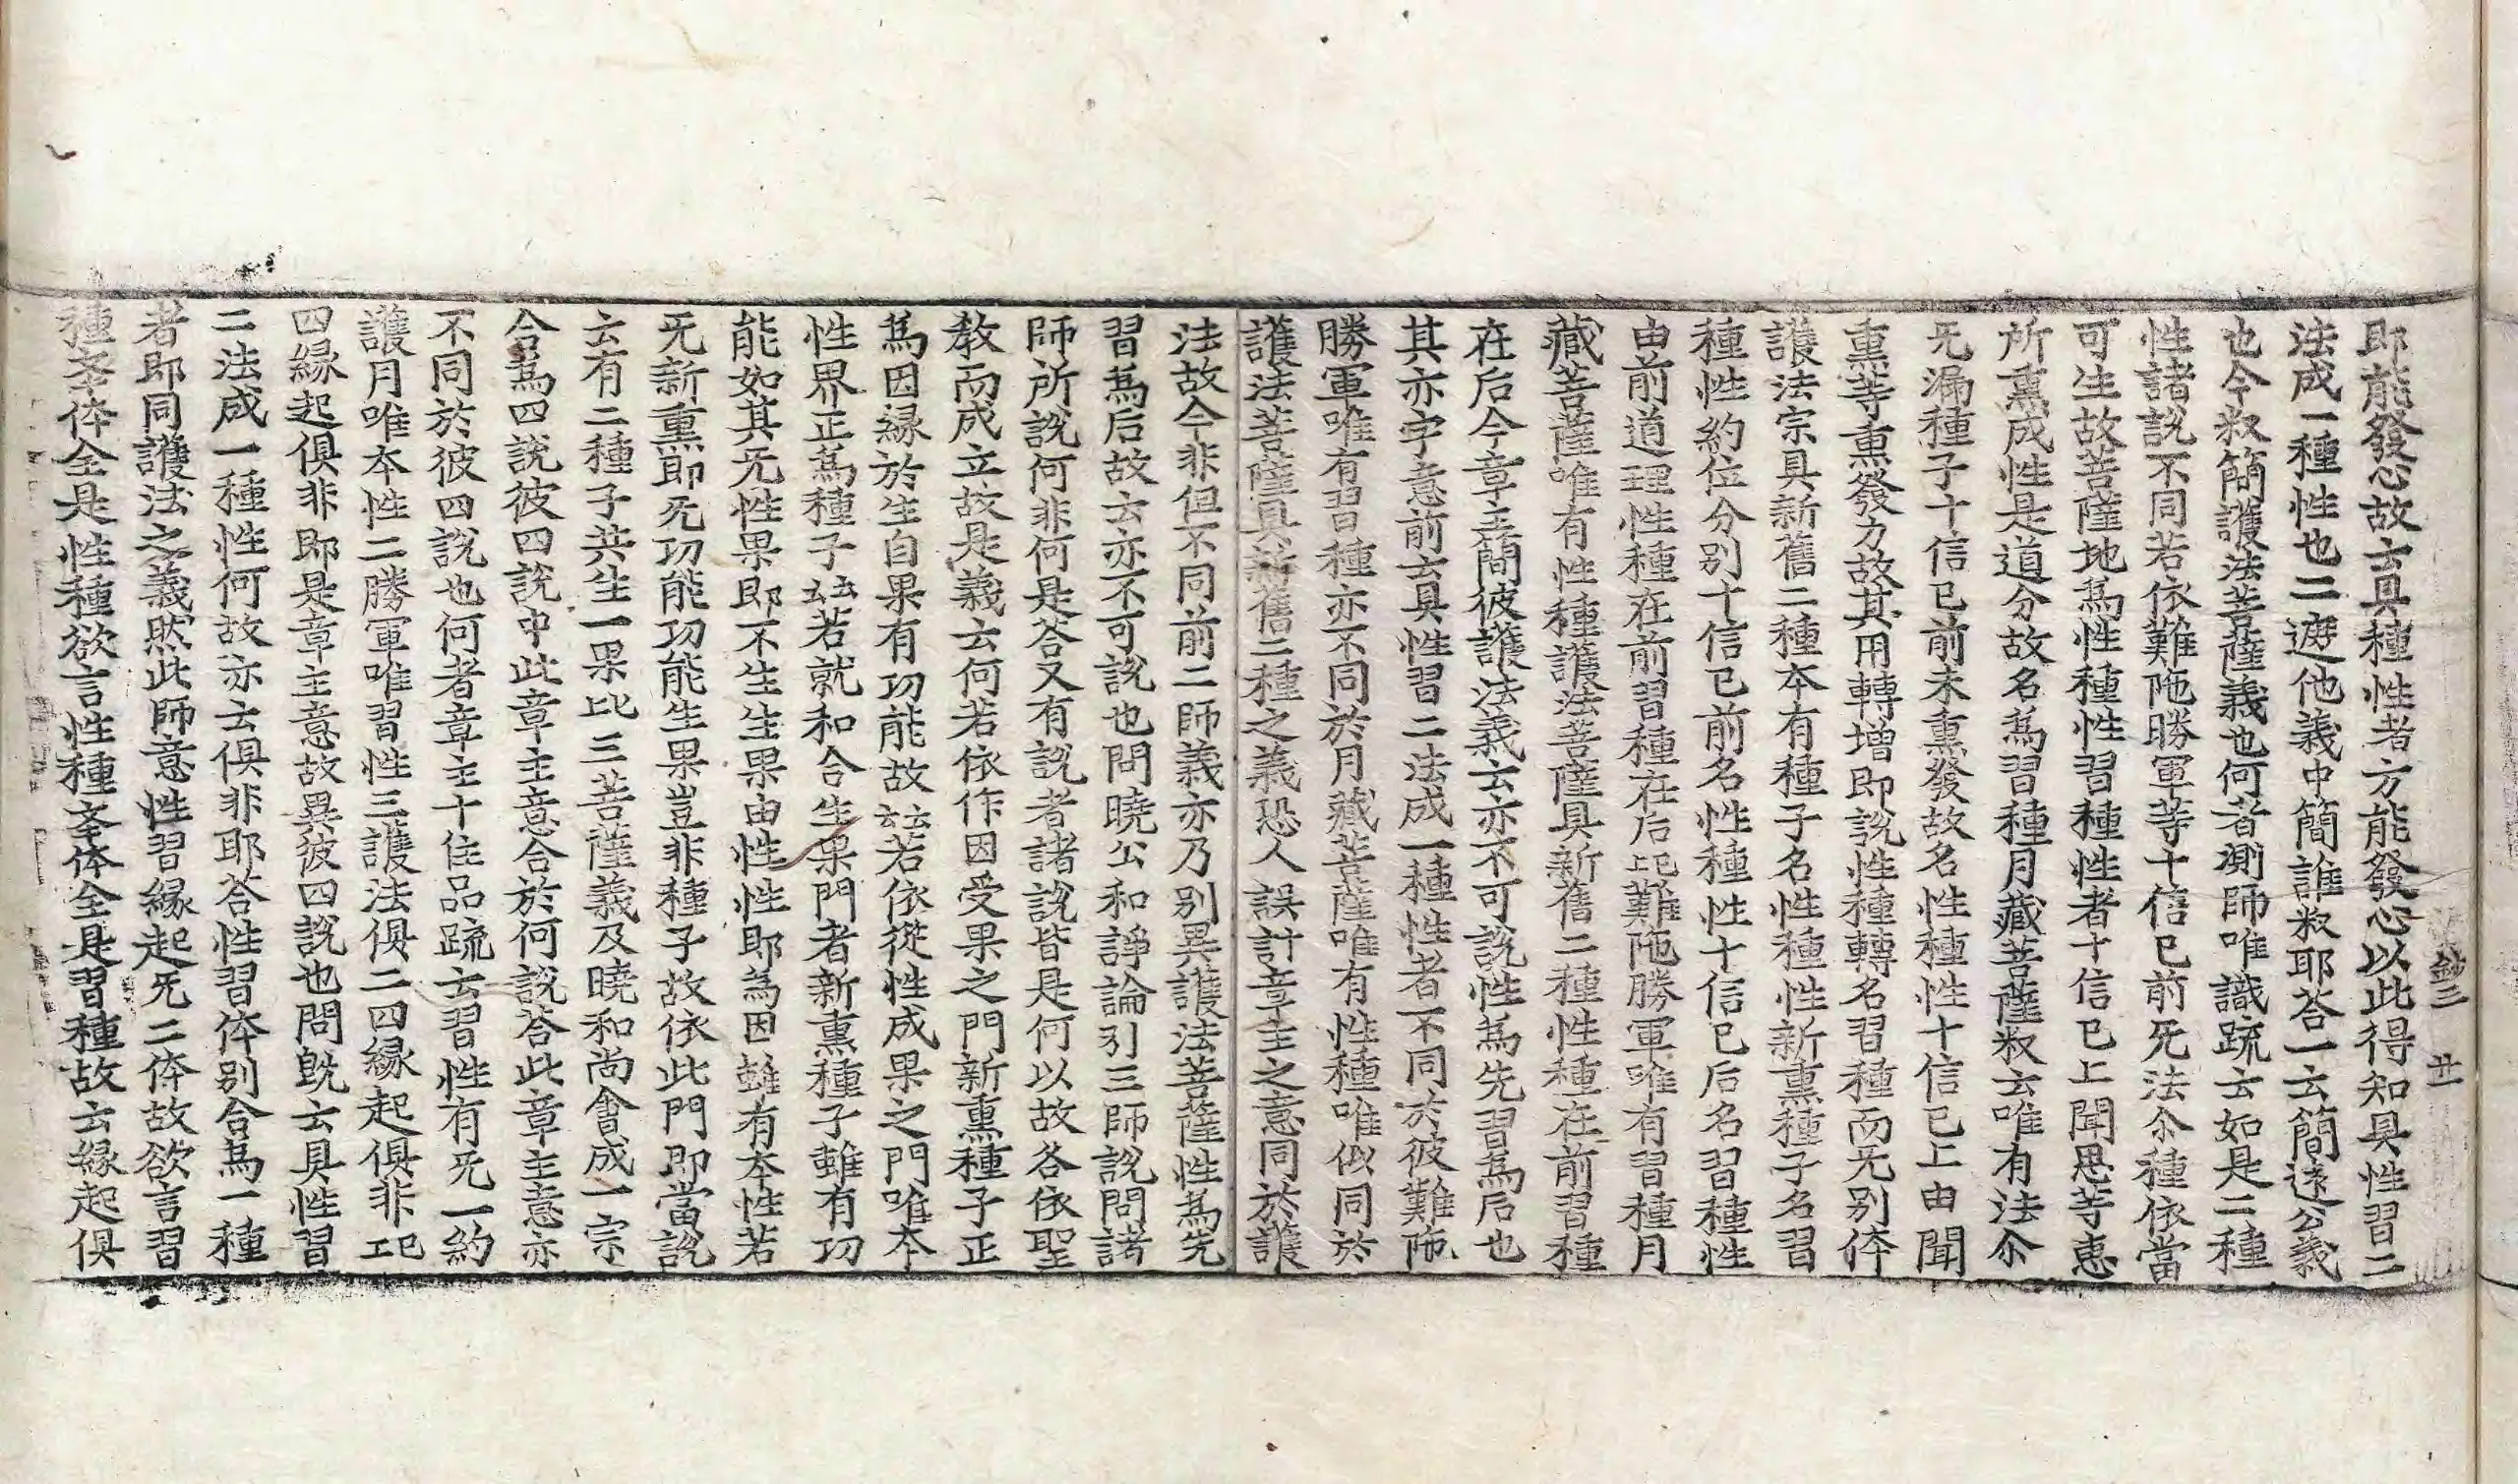 鈔三 廿一
即能發心故云具種性者方能發心以此得知具性習二
法成一種性也二遮他義中簡誰叙耶答一云簡遠公義
也今叙簡護法菩薩義也何者測師唯識疏云如是二種
性諸說不同若依難陁勝軍等十信已前无法尒種依當
可生故菩薩地爲性種性習種性者十信已上聞思等惠
所熏成性是道分故名爲習種月藏菩薩叙云唯有法尒
无漏種子十信已前未熏發故名性種性十信已上由聞
熏等熏發力故其用轉增即說性種轉名習種而无別体
護法宗具新舊二種本有種子名性種性新熏種子名習
種性約位分別十信已前名性種性十信已后名習種性
由前道理性種在前習種在后比難陁勝軍唯有習種月
藏菩薩唯有性種護法菩薩具新舊二種性種在前習種
在后今章主簡彼護法義云亦不可說性爲先習爲后也
其亦字意前云具性習二法成一種性者不同於彼難陁
勝軍唯有習種亦不同於月藏菩薩唯有性種唯似同於
護法菩薩具新舊二種之義恐人誤計章主之意同於護
法故今非但不同前二師義亦乃別異護法菩薩性爲先
習爲后故云亦不可說也問曉公和諍論引三師說問諸
師所說何非何是答又有說者諸說皆是何以故各依聖
敎而成立故是義云何若依作因受果之門新熏種子正
爲因緣於生自果有功能故云云若依從性成果之門唯本
性界正爲種子云云若就和合生果門者新熏種子雖有功
能如其无性果即不生生果由性性耶爲因雖有本性若
无新熏即无功能功能生果豈非種子故依此門即當說
云有二種子共生一果比三菩薩義及曉和尚會成一宗
合爲四說彼四說中此章主意合於何說答此章主意亦
不同於彼四說也何者章主十住品疏云習性有无一約
護月唯本性二勝軍唯習性三護法俱二四緣起俱非一記
四緣起俱非即是章主意故異彼四說也問旣云具性習
二法成一種性何故亦云俱非耶答性習体別合爲一種
者即同護法之義然此師意性習緣起无二体故欲言習
種𡉄体全是性種欲言性種𡉄体全是習種故云緣起俱